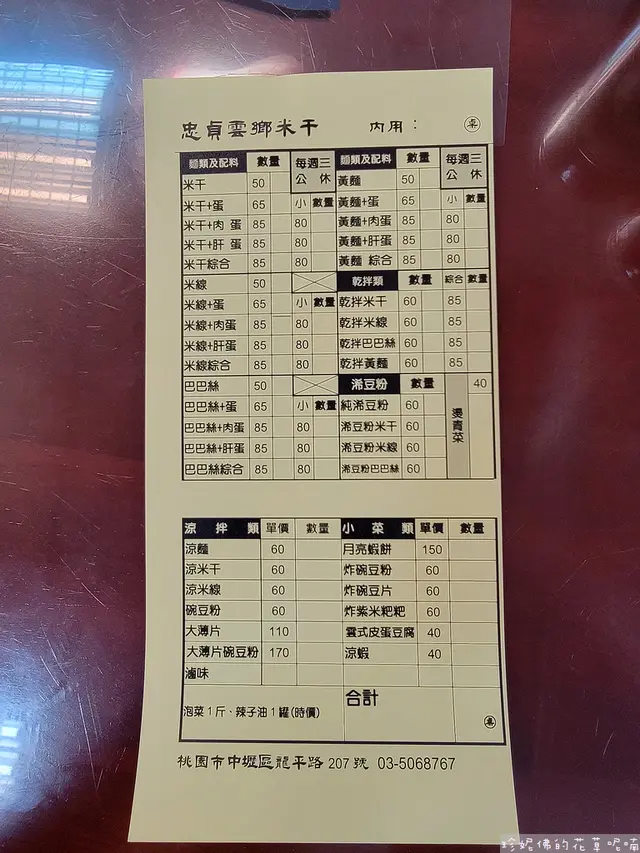 忠貞雲鄉米干 內用： 桌
麵類及配料 數量 每週三公休 麵類及配料 數量 每週三公休
米干 50 黃麵 50
米干+蛋 65 小 數量 黃麵+蛋 65 小 數量
米干+肉 蛋 85 80 黃麵+肉蛋 85 80
米干+肝 蛋 85 80 黃麵+肝蛋 85 80
米干綜合 85 80 黃麵 綜合 85 80
米線 50 乾拌類 數量 綜合 數量
米線+蛋 65 小 數量 乾拌米干 60 85
米線+肉蛋 85 80 乾拌米線 60 85
米線+肝蛋 85 80 乾拌巴巴絲 60 85
米線綜合 85 80 乾拌黃麵 60 85
巴巴絲 50 浠豆粉 數量 燙青菜 40
巴巴絲+蛋 65 小 數量 純浠豆粉 60
巴巴絲+肉蛋 85 80 浠豆粉米干 60
巴巴絲+肝蛋 85 80 浠豆粉米線 60
巴巴絲綜合 85 80 浠豆粉巴巴絲 60
涼拌類 單價 數量 小菜類 單價 數量
涼麵 60 月亮蝦餅 150
涼米干 60 炸碗豆粉 60
涼米線 60 炸碗豆片 60
碗豆粉 60 炸紫米粑粑 60
大薄片 110 雲式皮蛋豆腐 40
大薄片碗豆粉 170 涼蝦 40
滷味
泡菜1斤、辣子油1罐(時價) 合計
桃園市中壢區龍平路 207 號 03-5068767
珍妮佛的花草呢喃